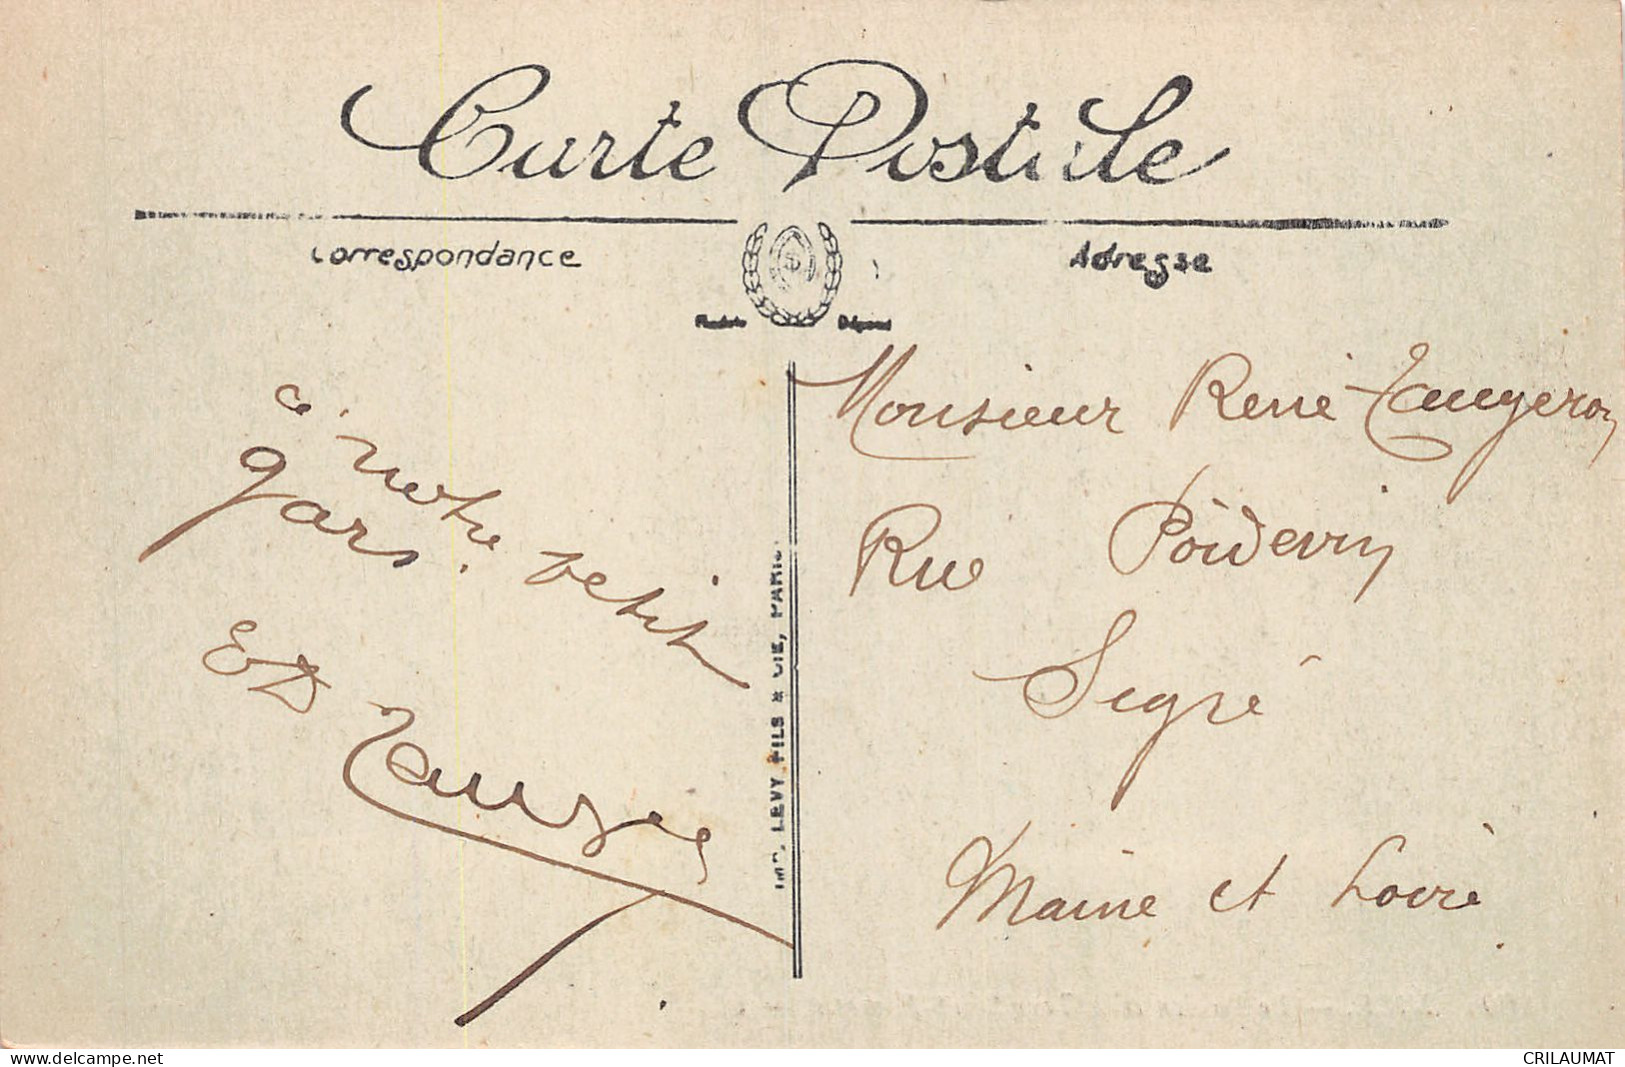 Carte Postale
Correspondance
Adresse
Modèle Déposé
à notre petit
gars.
Ed Faugere
IMP. LEVY FILS & CIE, PARIS.
Monsieur René Faugeron
Rue Poidevin
Segré
Maine et Loire
delcampe.net
CRILAUMAT